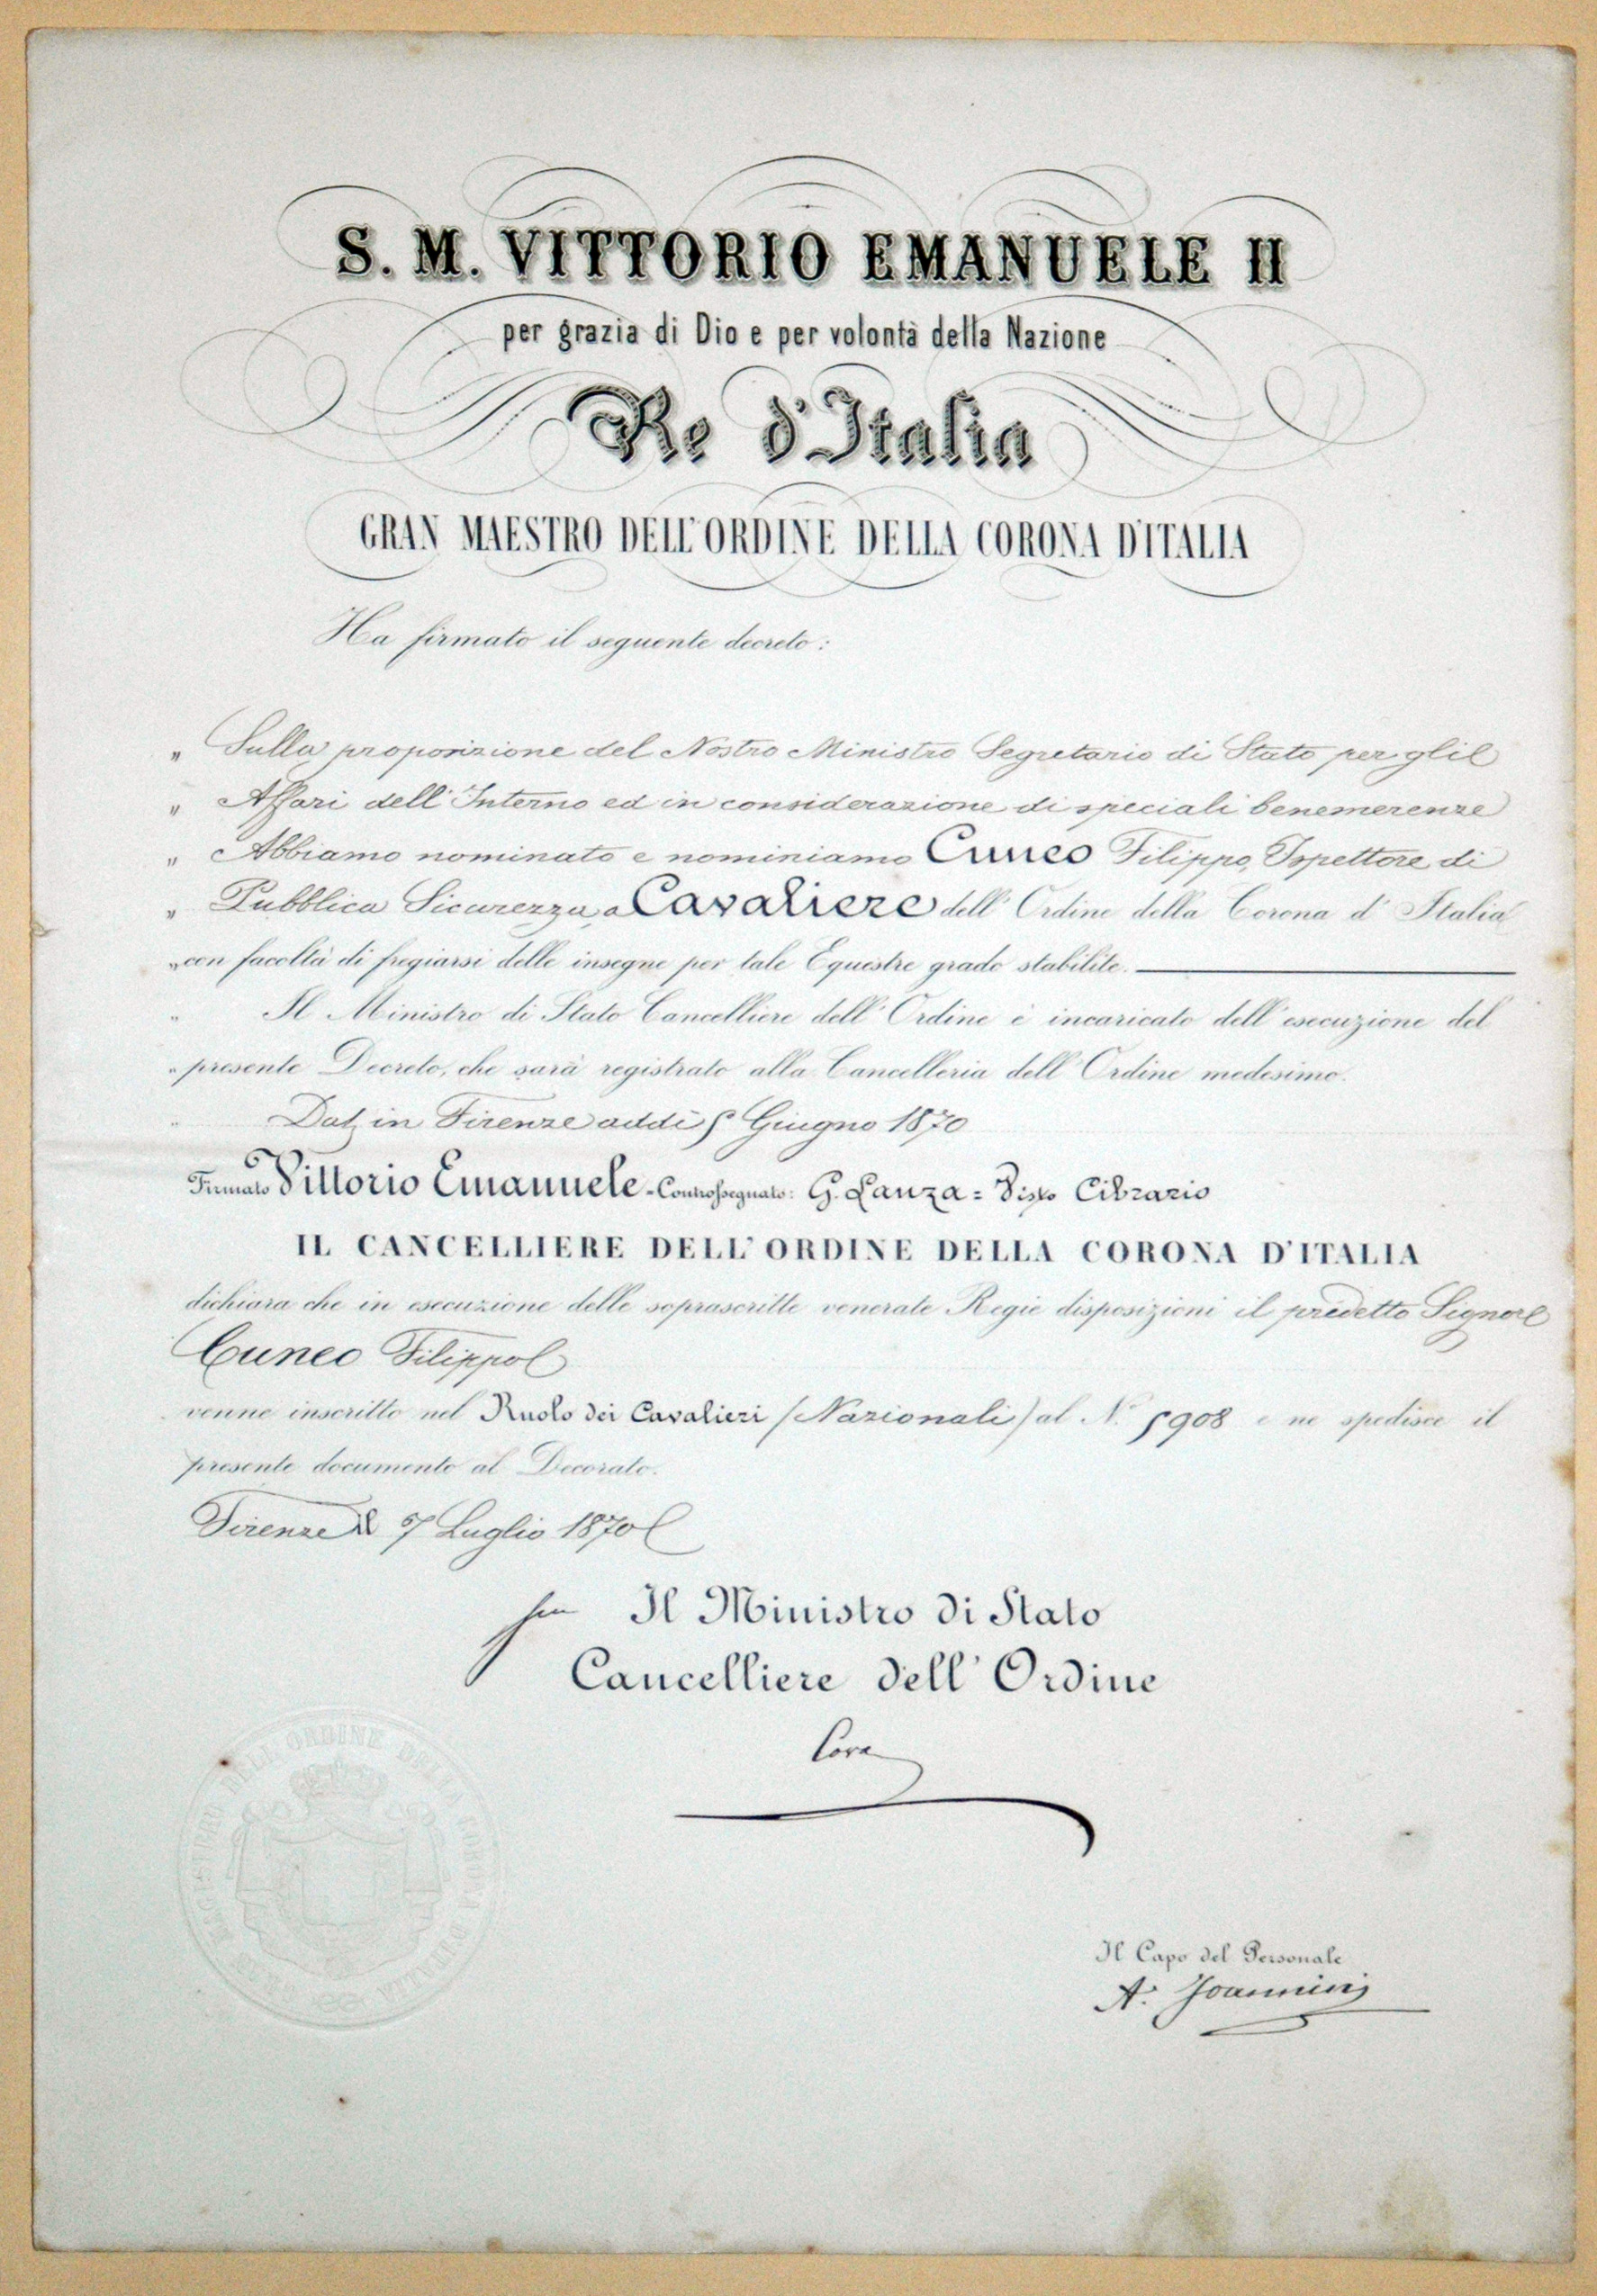 S. M. VITTORIO EMANUELE II
per grazia di Dio e per volontà della Nazione
Re d'Italia
GRAN MAESTRO DELL'ORDINE DELLA CORONA D'ITALIA
Ha firmato il seguente decreto:
„ Sulla proposizione del Nostro Ministro Segretario di Stato per gli
„ Affari dell'Interno ed in considerazione di speciali benemerenze
„ Abbiamo nominato e nominiamo Cuneo Filippo, Ispettore di
„ Pubblica Sicurezza, a Cavaliere dell'Ordine della Corona d'Italia
„ con facoltà di fregiarsi delle insegne per tale Equestre grado stabilite.
„ Il Ministro di Stato Cancelliere dell'Ordine è incaricato dell'esecuzione del
„ presente Decreto, che sarà registrato alla Cancelleria dell'Ordine medesimo.
„ Dat. in Firenze addì 5 Giugno 1870
Firmato Vittorio Emanuele - Controssegnato: G. Lanza = Visto Cibrario
IL CANCELLIERE DELL'ORDINE DELLA CORONA D'ITALIA
dichiara che in esecuzione delle soprascritte venerate Regie disposizioni il predetto Signore
Cuneo Filippo
venne inscritto nel Ruolo dei Cavalieri (Nazionali) al N. 5908 e ne spedisce il
presente documento al Decorato.
Firenze il 7 Luglio 1870
Il Ministro di Stato
Cancelliere dell'Ordine
Il Capo del Personale
A. Joannini
DELL'ORDINE DELLA CORONA D'ITALIA